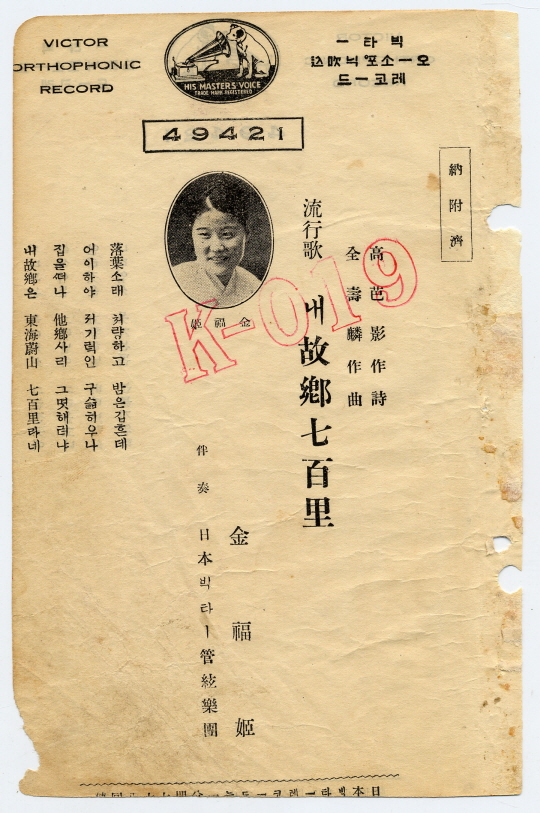 VICTOR
ORTHOPHONIC
RECORD
HIS MASTER'S VOICE
TRADE MARK REGISTERED
빅타ー
오ー소포닉吹込
레코ー드
49421
納附濟
高芭影作詩
全壽麟作曲
流行歌 내故鄕七百里
金福姬
伴奏 日本빅타ー管絃樂團
金福姬
K-019
落葉소래 처량하고 밤은깁흔데
어이하야 저기럭인 구슯히우나
집을떠나 他鄕사리 그몃해러냐
내故鄕은 東海蔚山 七百里라네